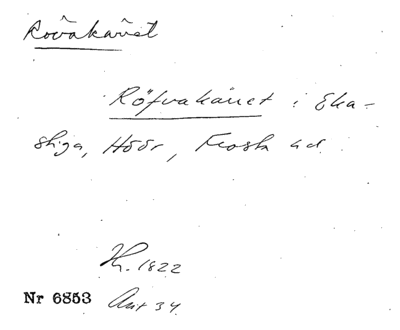 Rövakärret
Röfvakärret i Eka-
stiga, Höör, Frosta hd.
H. 1822
Nr 6853 Ant 34